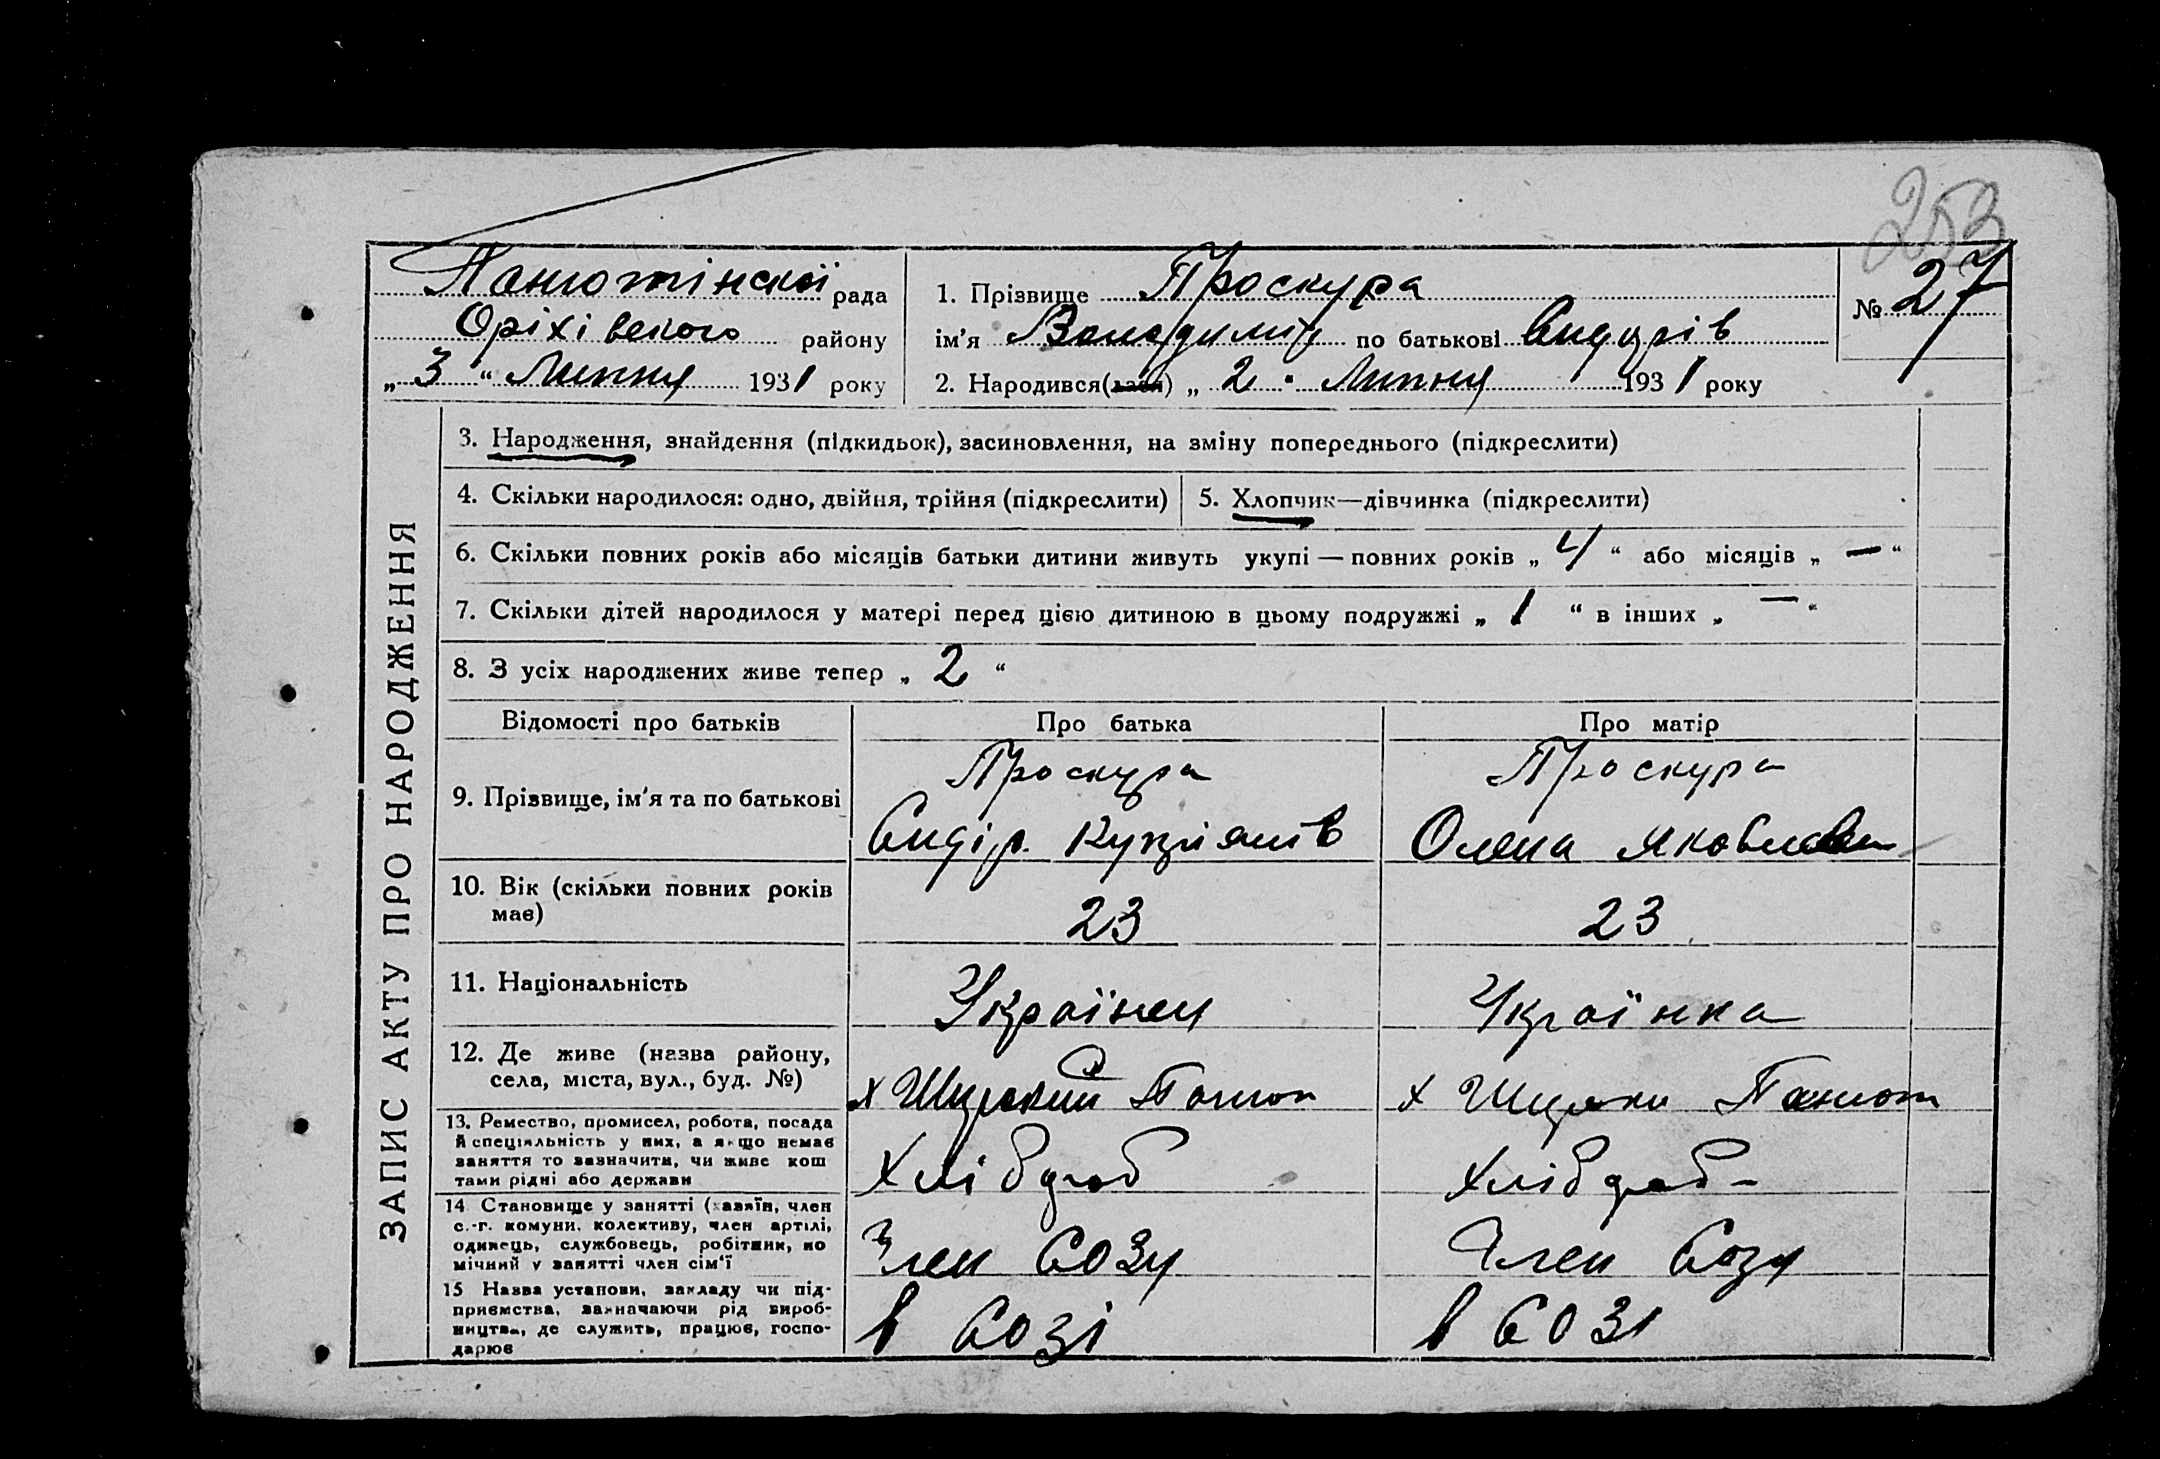 253
Панютінской рада
Оріхівского району
„ 3 “ Липня 1931 року
1. Прізвище Проскура
ім'я Володимир по батькові Сидорів
2. Народився(лася) „ 2 " Липня 1931 року
№ 27
ЗАПИС АКТУ ПРО НАРОДЖЕННЯ
3. Народження, знайдення (підкидьок), засиновлення, на зміну попереднього (підкреслити)
4. Скільки народилося: одно, двійня, трійня (підкреслити)
5. Хлопчик—дівчинка (підкреслити)
6. Скільки повних років або місяців батьки дитини живуть укупі — повних років „ 4 “ або місяців „ — “
7. Скільки дітей народилося у матері перед цією дитиною в цьому подружжі „ 1 “ в інших „ — “
8. З усіх народжених живе тепер „ 2 “
Відомості про батьків Про батька Про матір
9. Прізвище, ім'я та по батькові
Проскура
Сидір
Проскура
Олена Яковлевна
10. Вік (скільки повних років
має)
23
23
11. Національність
Українец
Українка
12. Де живе (назва району,
села, міста, вул., буд. №)
х
х
13. Ремество, промисел, робота, посада
й спеціяльність у них, а якщо немає
заняття то зазначити, чи живе кош
тами рідні або держави
Хлібороб
Хлібороб
14 Становище у занятті (хазяїн, член
с.-г. комуни, колективу, член артілі,
одинець, службовець, робітник, по
мічний у занятті член сім'ї
Член СОЗу
Член Созу
15 Назва установи, закладу чи під-
приємства, зазначаючи рід вироб-
ництва, де служить, працює, госпо-
дарює
в Созі
в СОЗі